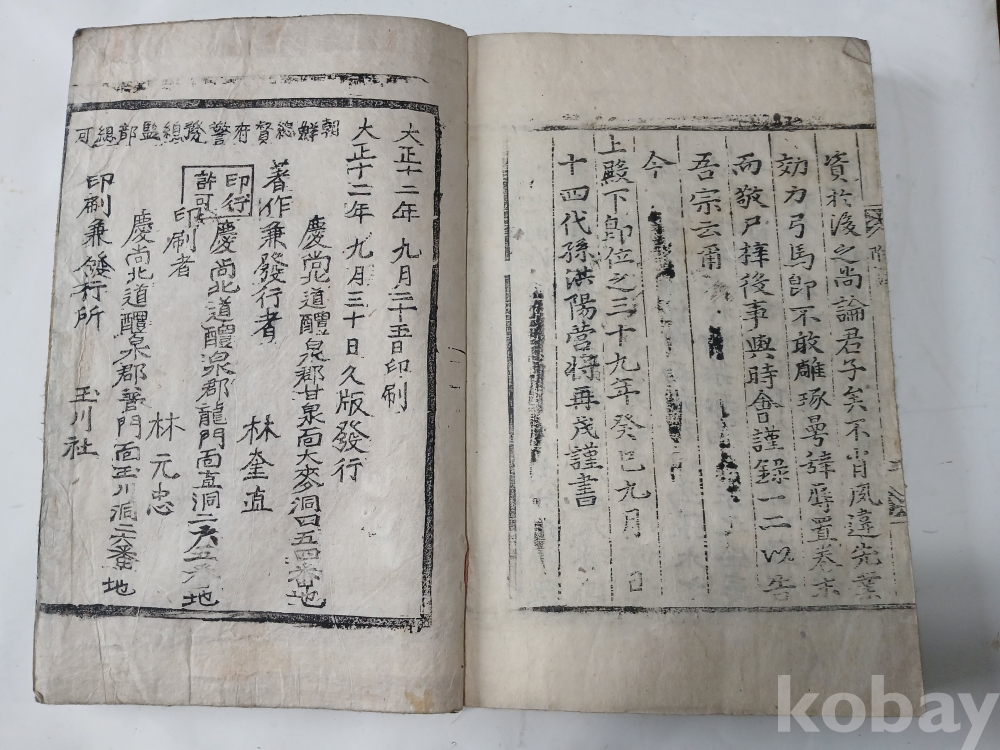 資於後之尚論君子矣不肖夙違先業
効力弓馬卽不敢雕琢曼辭辱置卷末
而敬尸梓後事與時會謹錄一二以告
吾宗云爾
今
上殿下卽位之三十九年癸巳九月 日
十四代孫洪陽營將再茂謹書
朝鮮總督府警務總監部總可
大正十二年 九月二十五日印刷
大正十二年 九月三十日久版發行
慶尙北道醴泉郡甘泉面大麥洞四五四番地
著作兼發行者 林奎直
印行許可
慶尙北道醴泉郡龍門面直洞二六五番地
印刷者 林元忠
慶尙北道醴泉郡普門面玉川洞二六番地
印刷兼發行所 玉川社
kobay